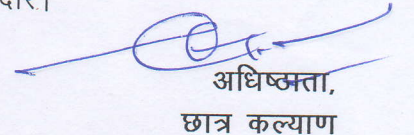 दार।
अधिष्ठाता,
छात्र कल्याण